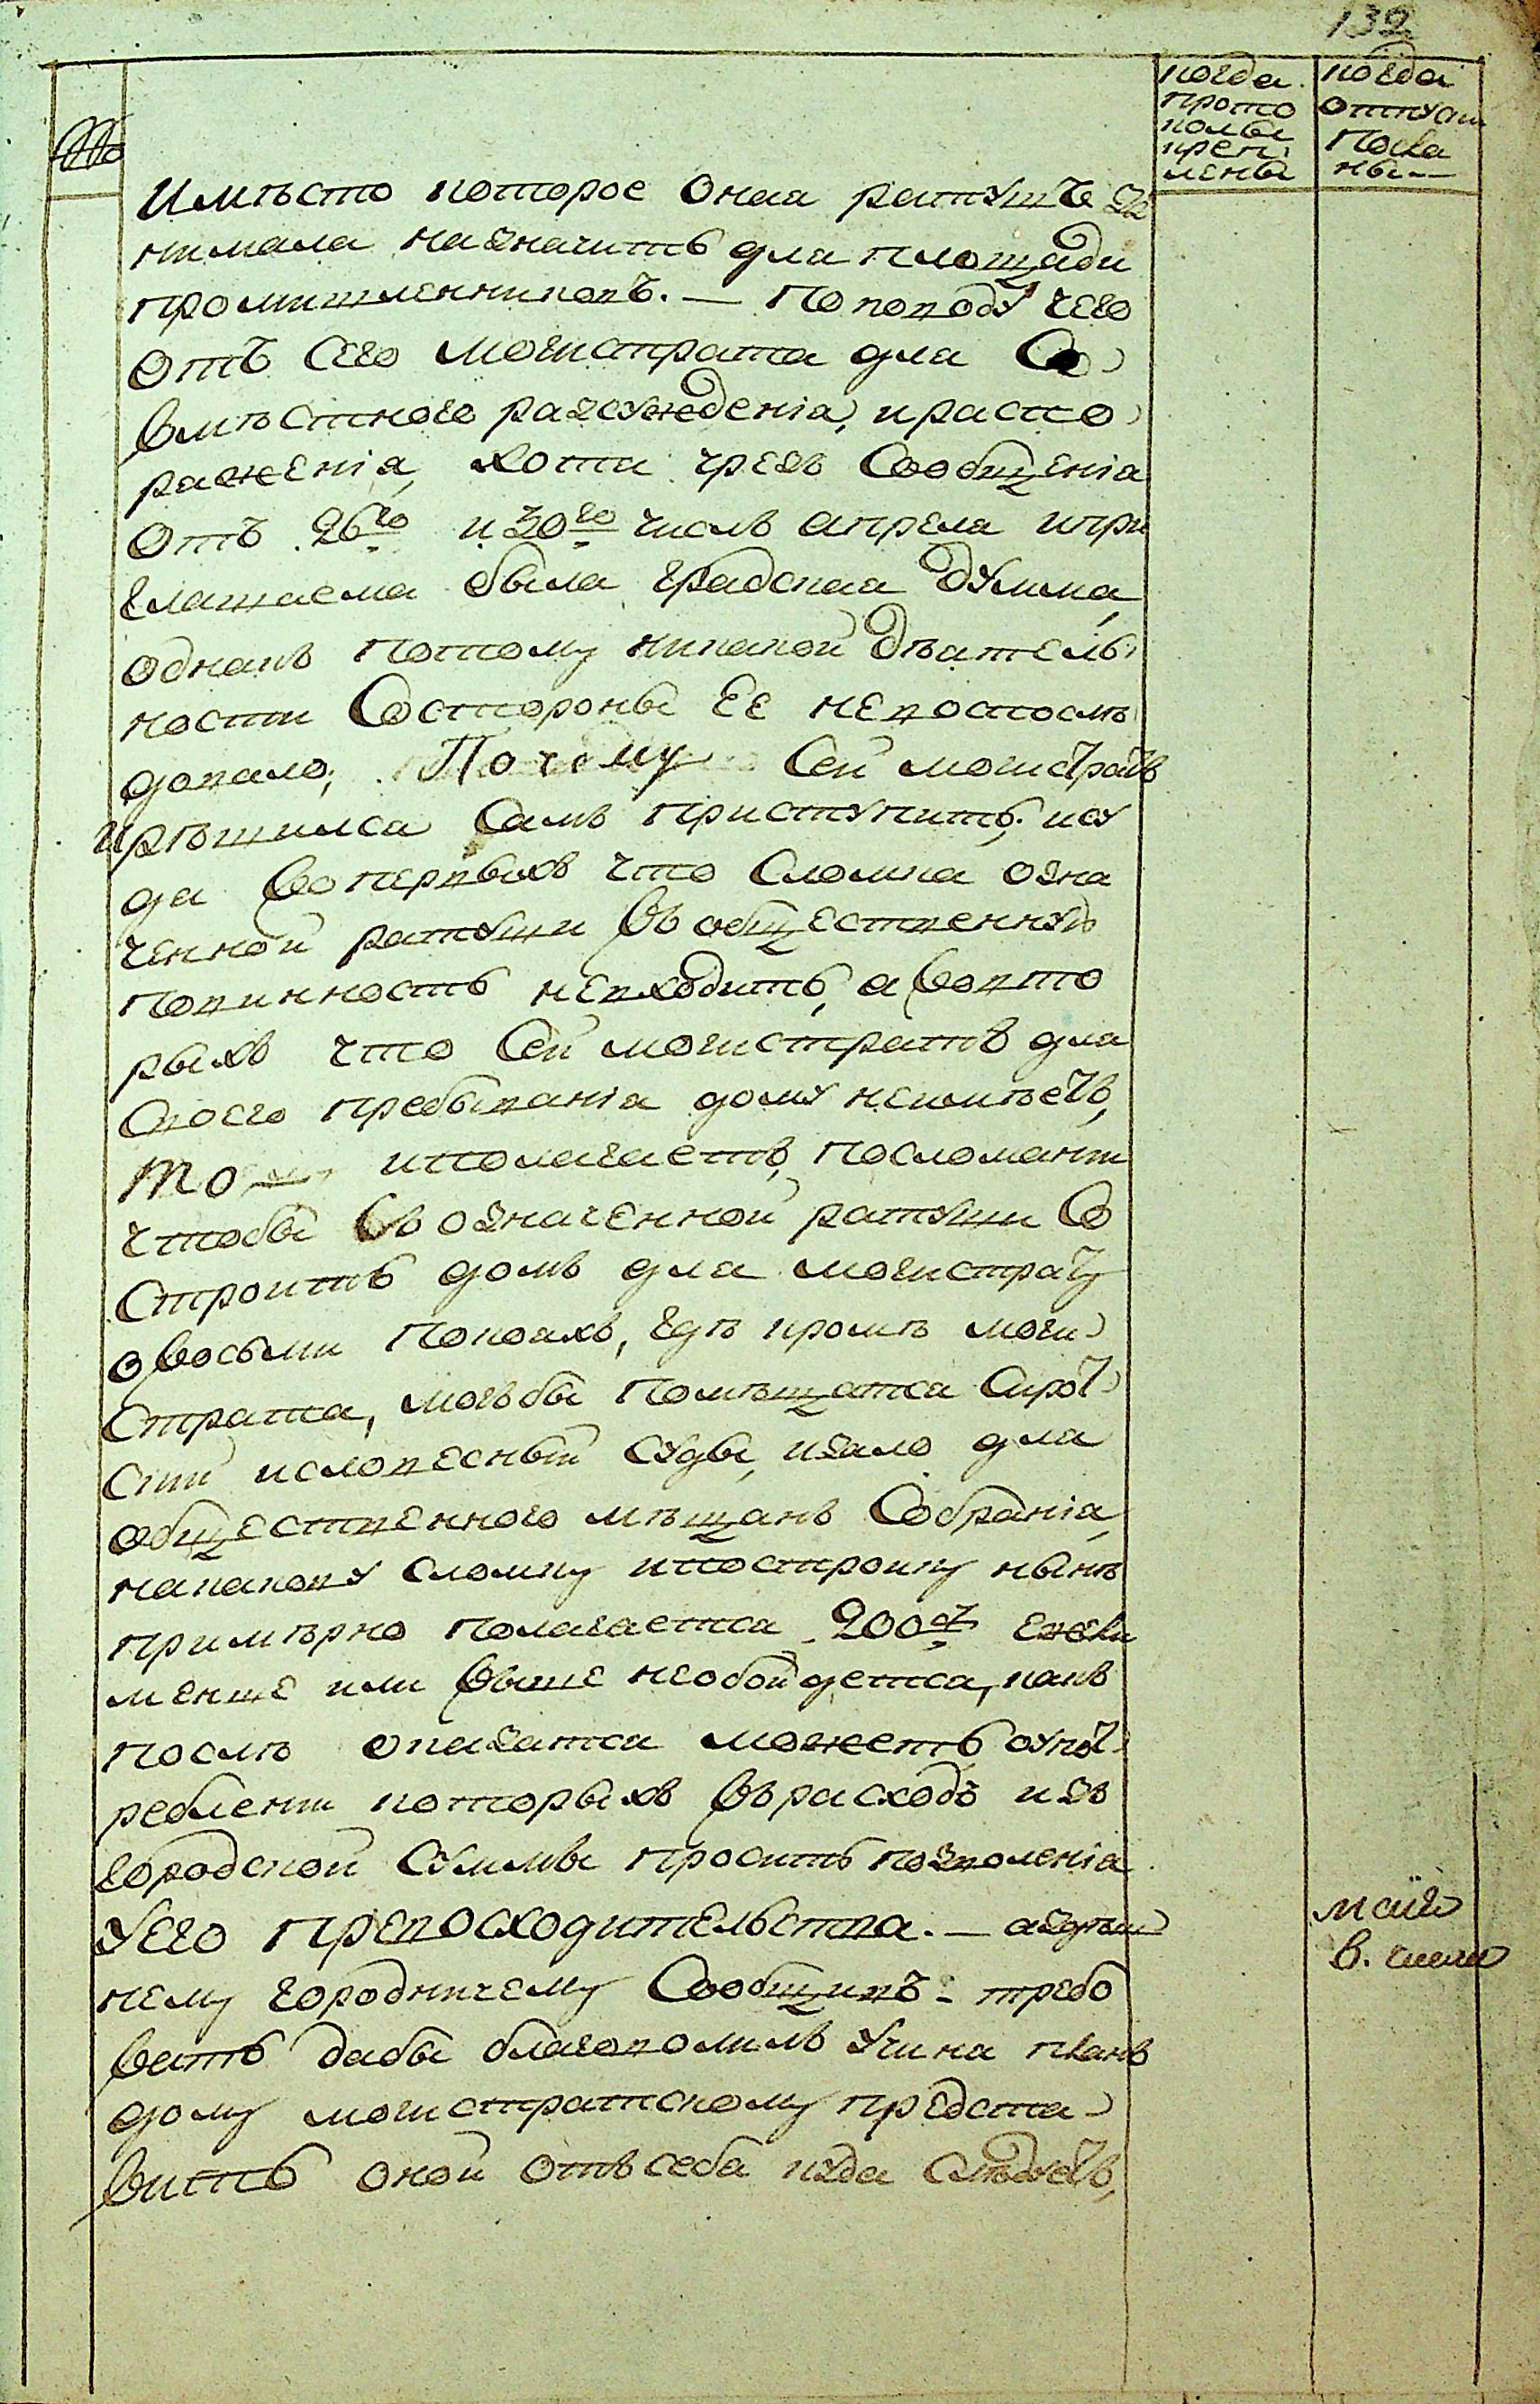 132
№
когда
прото
колы
креп:
лены
когда
отпуски
посла
ны —
И мѣсто которое оная ратушъ за
нимала назначить для площади
промишленниковъ. — По поводу чего
отъ сего магистрата для со
вмѣстного разсужденія, и распо
раженія, хотя чрезъ сообщенія
отъ 26го и 30го числъ апреля и при
глашаема была градская думма,
однакъ потому никакой дѣятель:
ности со стороны ее непослѣ
довало; Почему сей магистратъ
и рѣшился самъ приступить; и су
дя воперьвыхъ что сломка озна
ченной ратуши въ общественную
повинность невходить, а во вто
рыхъ что сей магистратъ для
своего пребыванія дому неимѣетъ,
то и полагаетъ, посломании
чтобы въ означенной ратуши со
строить домъ для магистрату
о восьми покояхъ, гдѣ кромѣ маги
страта, могъбы помѣщатса сирот
скій исловесный суды, изало для
общественного мѣщанъ собранія,
накакову сломку ипостроику нынѣ
примѣрно полагаетса 200 ежели
менше или выше необойдетса, какъ
послѣ оказатса можетъ оупот
реблении которыхъ въ расходъ изъ
городской суммы просить позволенія
у его превосходительства. — аздѣш
нему городничему сообщивъ - требо
вать дабы благоволилъ учиня планъ
дому магистратскому предста
вить оной отъ себя куда слѣдуетъ,
маія